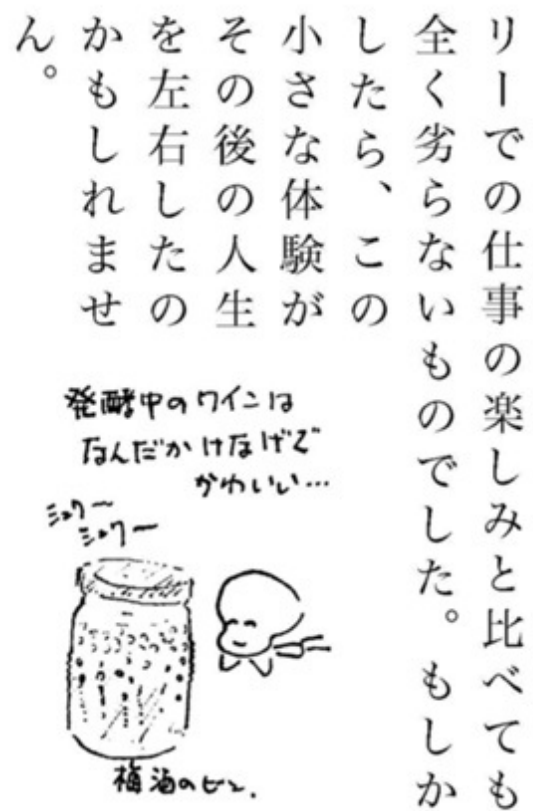 リーでの仕事の楽しみと比べても
全く劣らないものでした。もしか
したら、この
小さな体験が
その後の人生
を左右したの
かもしれませ
ん。
発酵中のワインは
なんだかけなげで
かわいい…
シュワ〜
シュワ〜
梅酒のビン.